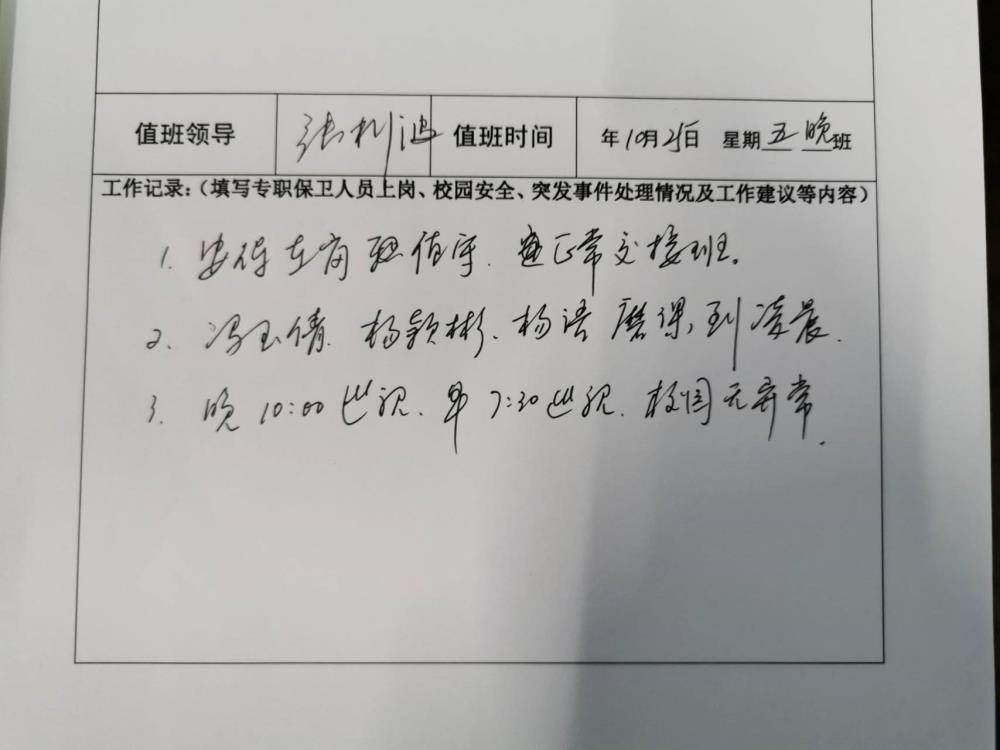 值班领导 张利波 值班时间 年10月25日 星期五 晚班
工作记录:(填写专职保卫人员上岗、校园安全、突发事件处理情况及工作建议等内容)
1. 安保在岗 值守. 正常交接班。
2. 冯玉倩. 杨颖彬. 杨语 磨课,到凌晨.
3. 晚10:00巡视. 早7:30巡视. 校园无异常.